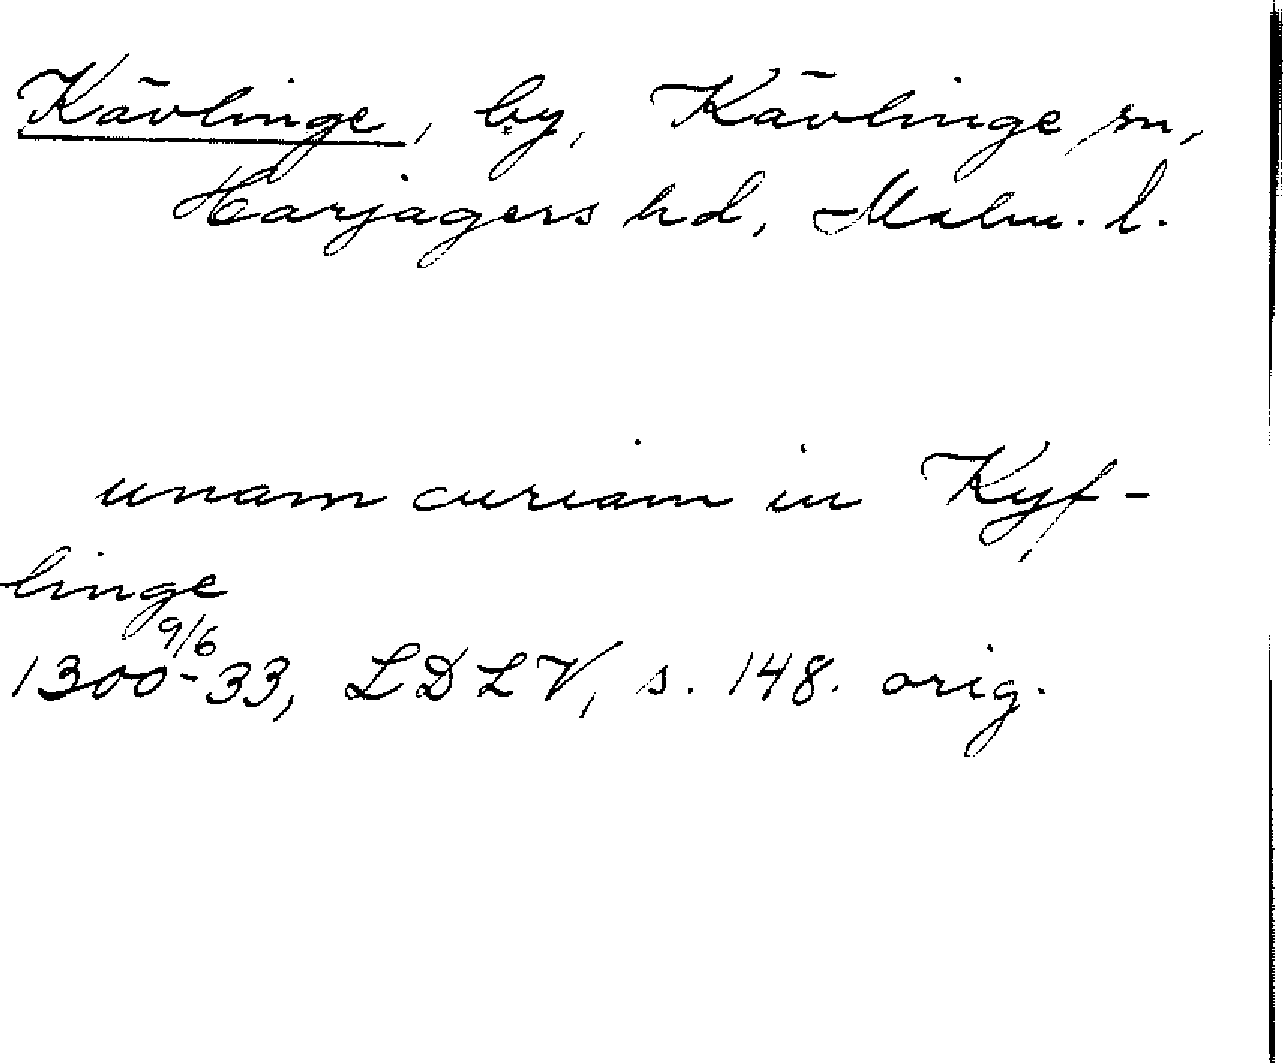 Kävlinge, by, Kävlinge sn,
Harjagers hd, Malm. l.
unam curiam in Kyf-
linge
9/6
1300-33, LDLV, s. 148. orig.